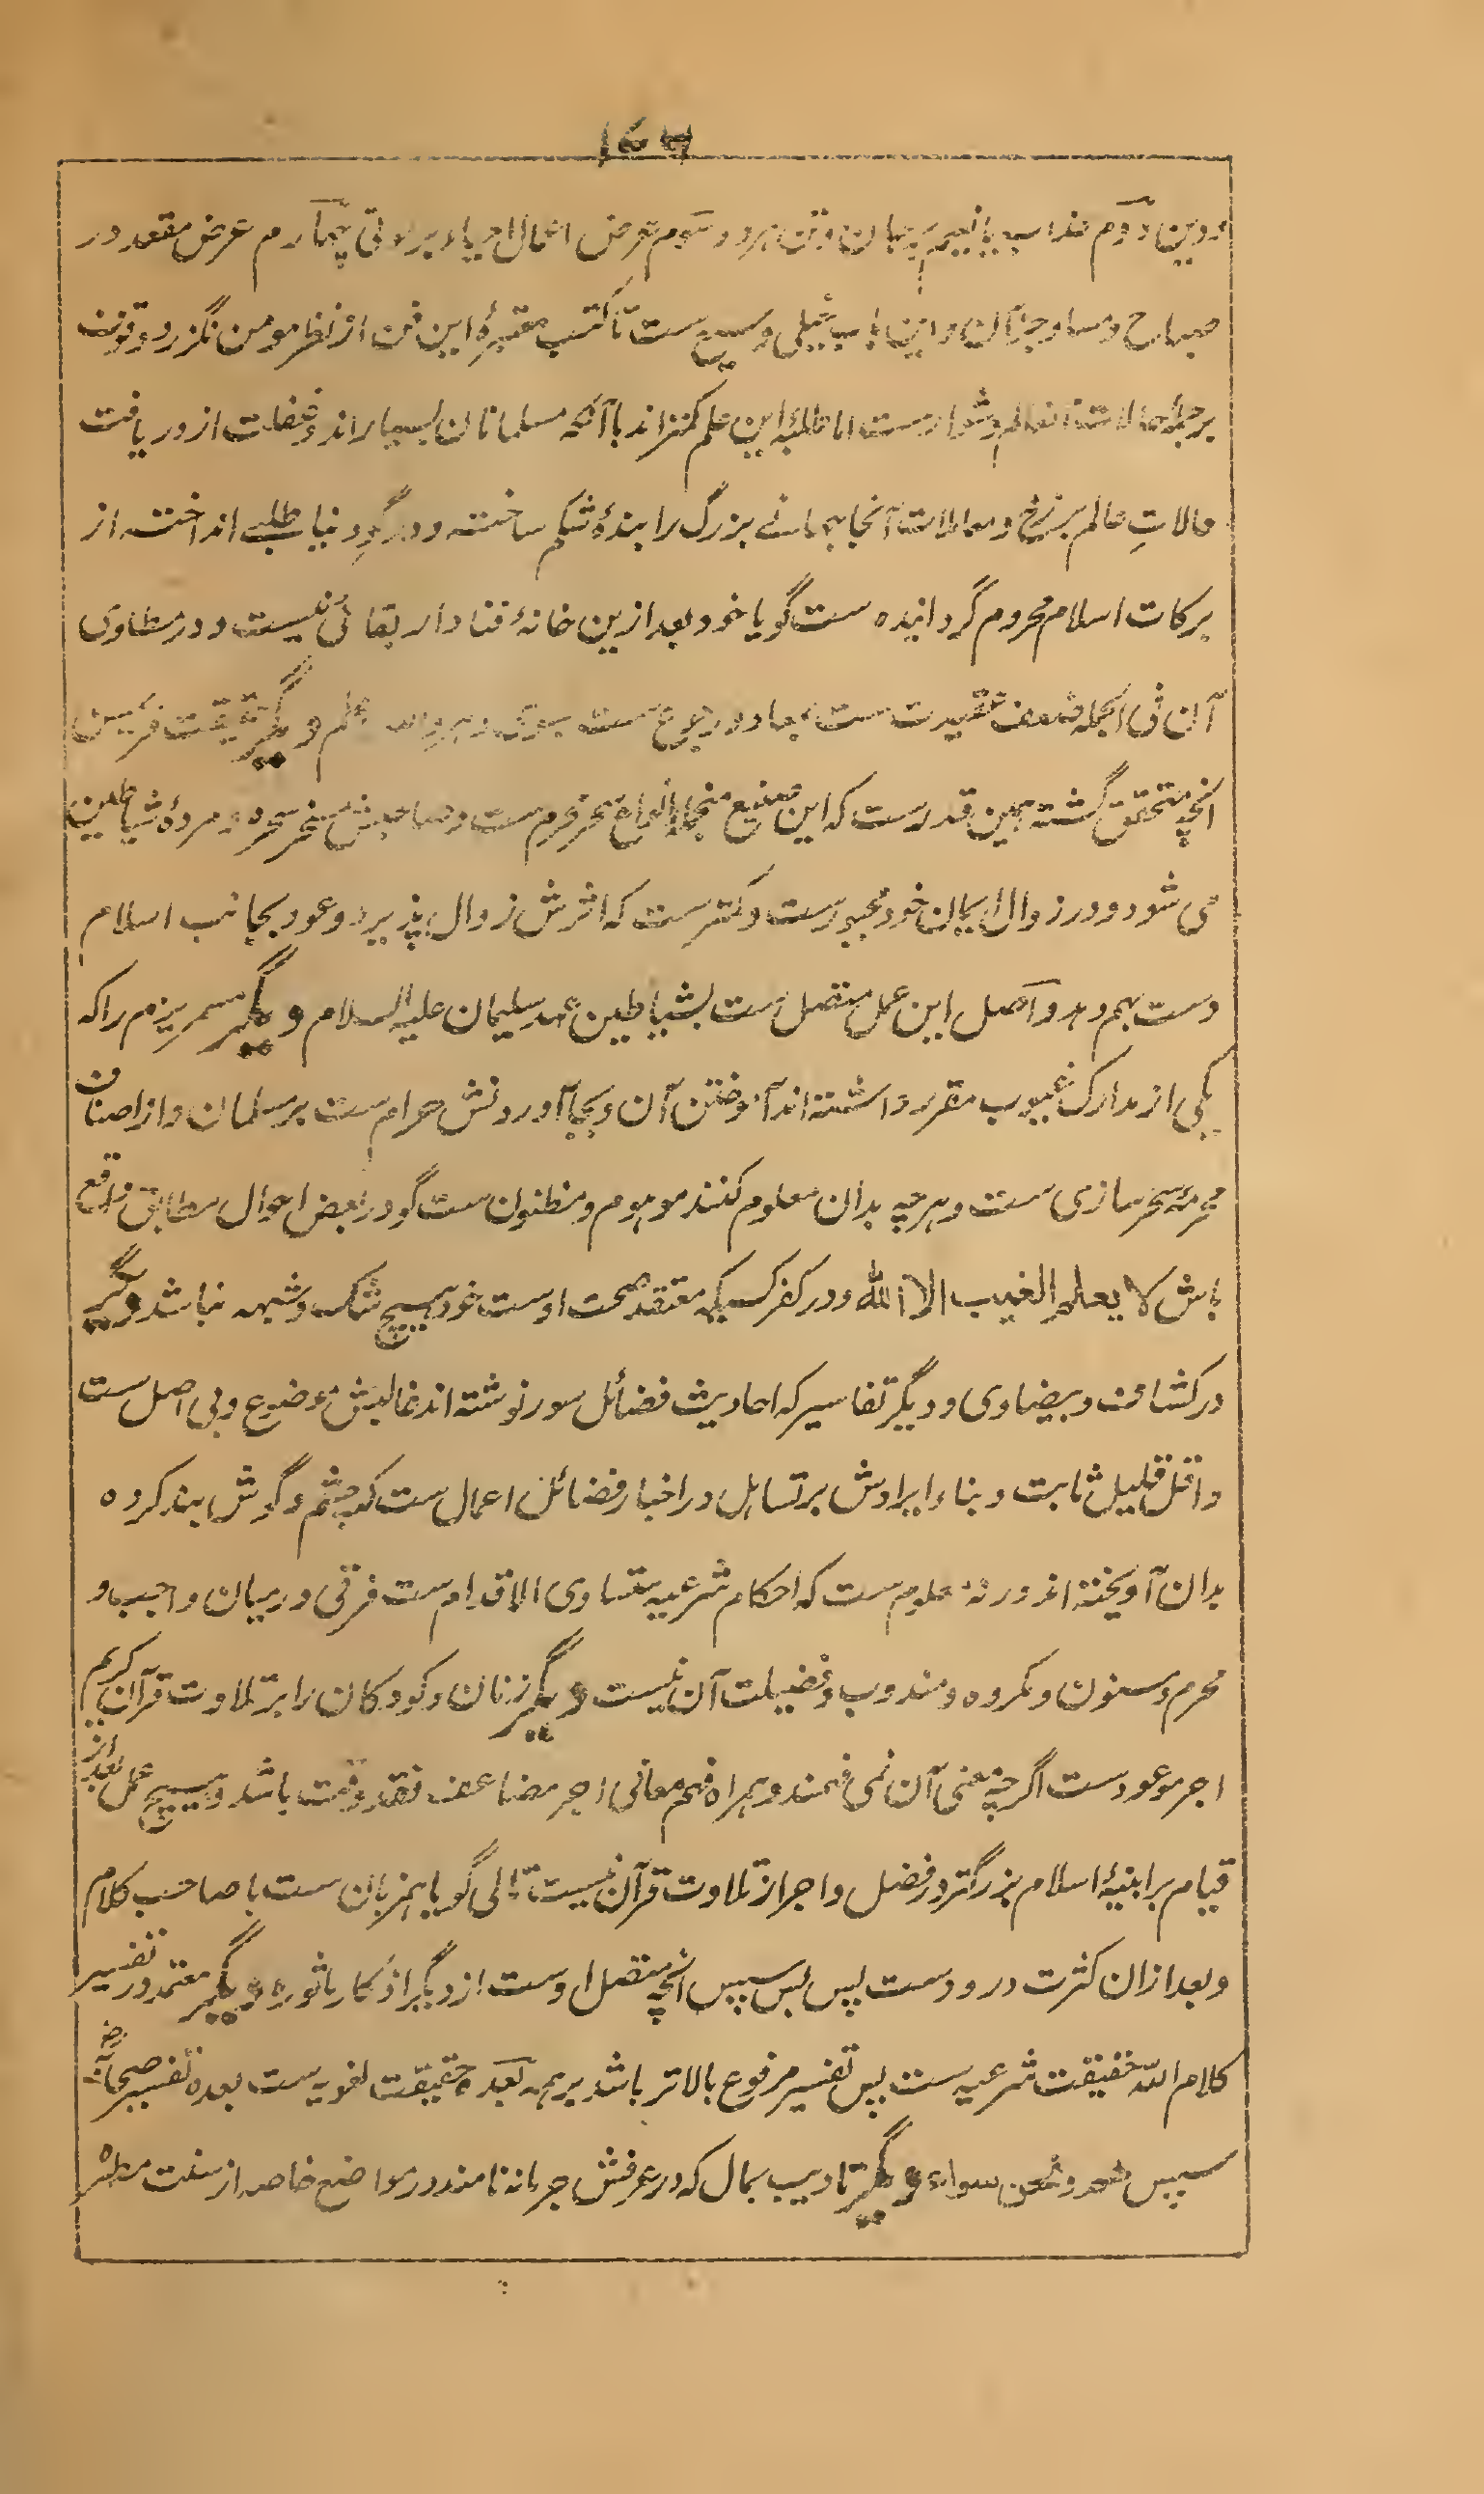 ۱۶۷
دوین دوم عذاب یا نعیم بر جان و تن هر دو سوم عرض اعمال احیاء بر موتی چهارم عرض مقعد در
صباح و مسا و جز آن و این باب خیلی وسیع ست تا کتب معتبرهٔ این فن از نظر مومن نگزرد وقوف
بر جملهٔ حالات آنعالم دشوارست اما طلبهٔ این علم کمتراند با آنکه مسلمانان بسیاراند و غفلت از دریافت
حالاتِ عالم برزخ و معاملات آنجا جهانے بزرگ را بندهٔ شکم ساخته و در گروِ دنیا طلبے انداخته از
برکات اسلام محروم گردانیده ست گویا خود بعد ازین خانهٔ فنا دار بقائی نیست و در مطاوی
آن فی الجمله ضعف عقیدت ست بمعاد و رجوع ست بسوی دهر والله اعلم و دیگر حقیقت فریمیسن
آنچه متحقق گشته همین قدرست که این صنیع منجملهٔ انواع سحر محرم ست و صاحبش مسخر سحره و مردهٔ شیاطین
می شود و در زوال ایمان خود مجبورست و کمترست که اثرش زوال پذیرد و عود بجانب اسلام
دست بهم دهد و اصل این عمل متصل ست بشیاطین عهد سلیمان علیه السلام و دیگر مسمریزم را که
یکی از مدارک غیوب مقرر داشته اند آموختن آن و بجا آوردنش حرام ست بر مسلمان و از اصناف
محرمهٔ سحر سازی ست و هرچه بدان معلوم کنند موهوم و مظنون ست گو در بعض احوال مطابق واقع
باش لا یعلم الغیب الا الله و در کفر کسیکه معتقد صحت اوست خود هیچ شک و شبهه نباشد و دیگر
در کشاف و بیضاوی و دیگر تفاسیر که احادیث فضائل سور نوشته اند غالبش موضوع و بی اصل ست
و اقل قلیل ثابت و بناء ایرادش بر تساهل در اخبار فضائل اعمال ست که چشم و گوش بند کرده
بدان آویخته اند ورنه معلوم ست که احکام شرعیه متساوی الاقدام ست فرقی درمیان واجب و
محرم و مسنون و مکروه و مندوب و فضیلت آن نیست و دیگر زنان و کودکان را بر تلاوت قرآن کریم
اجر موعودست اگرچه معنی آن نمی فهمند و همراه فهم معانی اجر مضاعف نقد وقت باشد و هیچ عمل بعد از
قیام بر ابنیهٔ اسلام بزرگتر در فضل و اجر از تلاوت قرآن نیست تالی گویا همزبان ست با صاحب کلام
و بعد ازان کثرت درودست پس پس سپس آنچه متصل اوست از دیگر اذکار ماثوره و دیگر معتمد در تفسیر
کلام الله حقیقت شرعیه ست پس تفسیر مرفوع بالاتر باشد بر همه بعده حقیقت لغویه ست بعده تفسیر صحابه رض
سپس هم و نحن سواء و دیگر تادیب بمال که در عرفش جرمانه نامند در مواضع خاصه از سنت مطهره